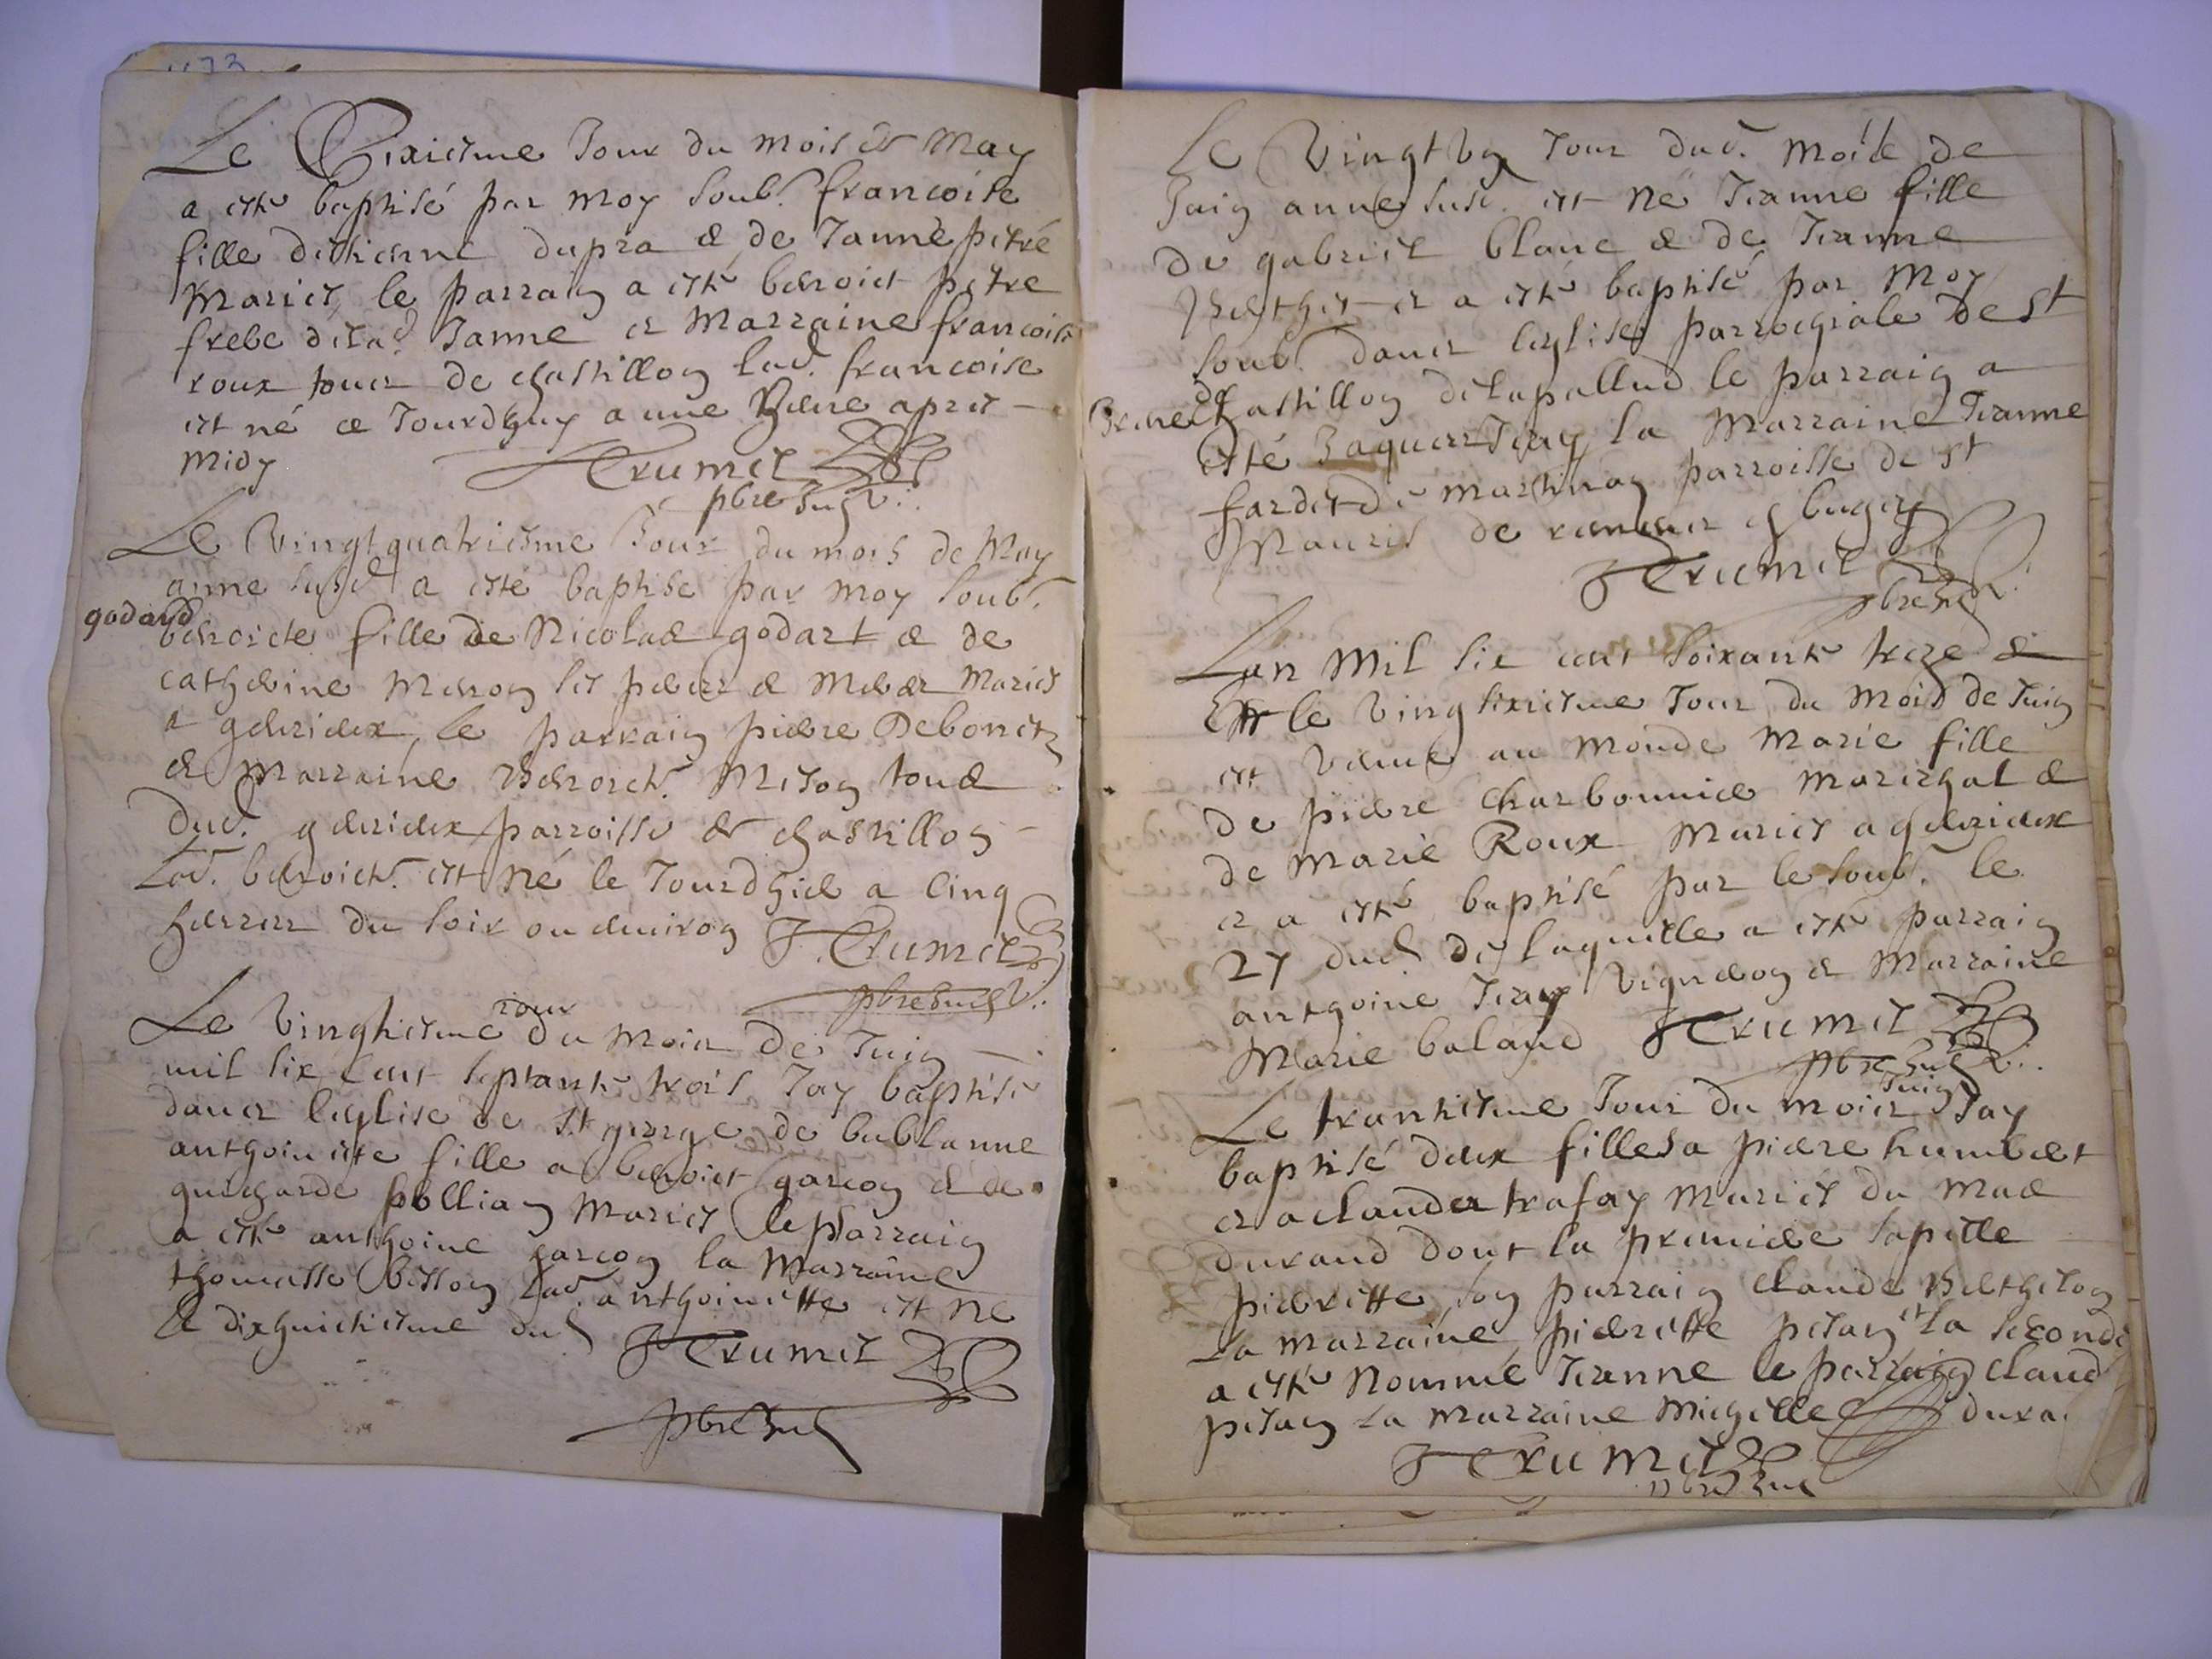 Le Sixiesme Jour du mois de May
a esté baptisé par moy soub. francoise
fille detienne dupra & de Janne petre
Maries, le parrain a esté benoict petre
frere delad. Janne et Marraine francoise
roux tous de chastillon lad. francoise
est né ce Jourdhuy a une heure apres
midy
Trumel
pbre Vic
Le Vingtquatriesme Jour du mois de May
anne susd. a esté baptisé par moy soub.
godard
benoicte fille de Nicolas godart & de
catherine Meron ses pere & Mere Maries
a gevrieux, le parrain piere Debonetz
& Marraine Benoicte Meton tous
dud. gevrieux parroisse de chastillon
Lad. benoicte est né le Jourdhier a cinq
heures du soir ou environ J. Trumel
pbre Vic
jour
Le Vinghiesme du Mois de Juin
mil six cent septante trois Jay baptisé
dans leglise de St george de bublanne
anthoinette fille a benoict garcon & de
guicharde pollian Maries le parrain
a esté anthoine garcon la Marraine
thomasse bisson Lad. anthoinette est né
le dixhuictiesme dud.
J Trumel
pbre Vic
Le Vingt Un Jour dud. Mois de
Juin anne susd. est Né Jeanne fille
de gabriel blanc & de Jeanne
Berthet et a esté baptisé par Moy
soub. dans leglise parrochiale de St
de Chastillon delapallud le parrain a
esté Jaques Jean la Marraine Jeanne
fardet de Martinaz parroisse de St
Mauris de remens en bugey
J Trumel
pbre Vic
Lan Mil six cent soixante treze &
le Vingsixiesme Jour du Mois de Juin
est Venue au Monde Marie fille
de piere Charbonnier Mareschal &
de Marie Roux Maries a gevrieux
et a esté baptisé par le soub. le
27 dud. de laquelle a esté parrain
anthoine Jean Vigneron & Marraine
Marie baland J Trumel
pbre Vic
Juin
Le trantiesme Jour du mois Jay
baptisé deux filles a piere humbert
et a claudea trafay Maries du Mas
durand dont la premiere sapelle
pierrette son parrain Claude Berthelon
La marraine pierrette petan et la seconde
a esté Nommé Jeanne le parrain Claud
petan La marraine Michelle dura
J Trumel
pbre Vic